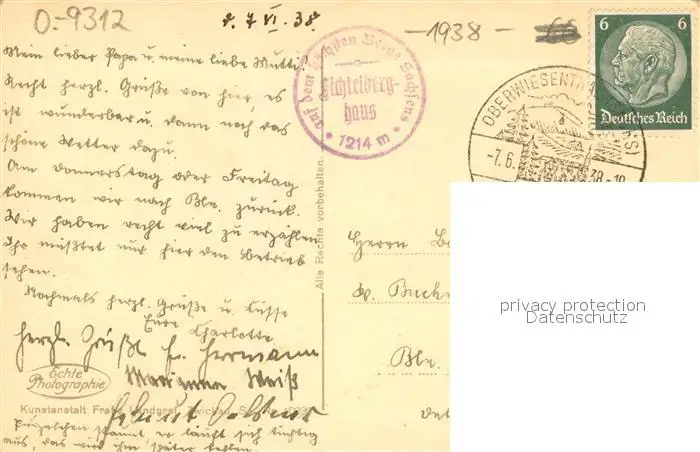 O-9312
d. 7 VI. 38.
- 1938 -
Mein lieber Papa u. meine liebe Mutti!
Recht herzl. Grüße von hier, es
ist wunderbar u. dann noch das
schöne Wetter dazu.
Am Donnerstag oder Freitag
kommen wir nach Bln. zurück.
Wir haben recht viel zu erzählen
Ihr müßtet nur hier den Betrieb
sehen.
Nochmals herzl. Grüße u. Küsse
Eure Charlotte
herzl. Grüße
Hermann
Marianna Weiß
Echte
Photographie
Kunstanstalt
Zwickau
er läuft sich tüchtig
aus, das wird ihm später fehlen.
Auf dem höchsten Berge Sachsens
Fichtelberg-
haus
1214 m
Alle Rechte vorbehalten.
6 6
Deutsches Reich
OBERWIESENTHAL
-7.6. 38-18
Herrn
Bln.
privacy protection
Datenschutz